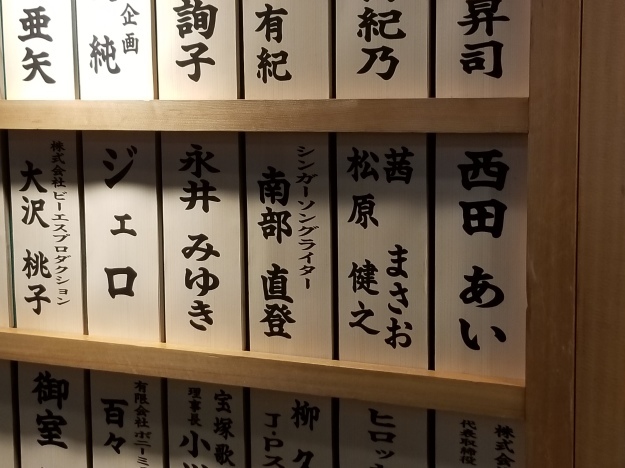 昇司
紀乃
有紀
詢子
企画
純
亜矢
西田 あい
茜 まさお
松原 健之
シンガーソングライター
南部 直登
永井 みゆき
ジェロ
株式会社 ビーエスプロダクション
大沢 桃子
株式会社
代表取締役
ヒロッ
柳
J・P
宝塚歌
理事長
小
有限会社
百々
御室